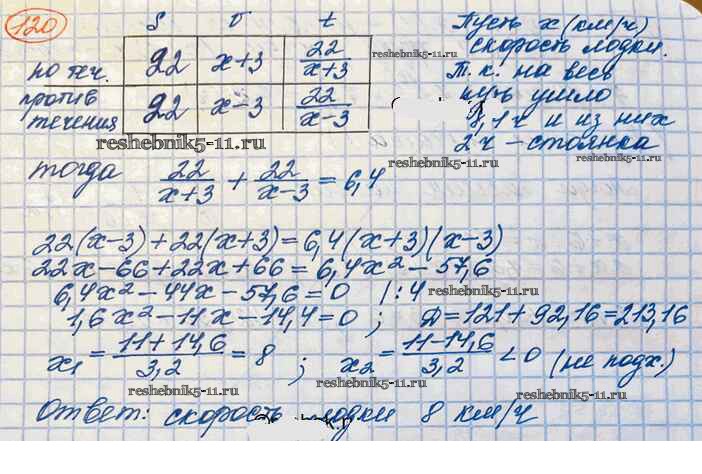 120
S v t
по теч. 22 x+3 22/(x+3)
против течения 22 x-3 22/(x-3)
Пусть x (км/ч)
скорость лодки.
Т.к. на весь
путь ушло
ч и из них
2ч – стоянка
reshebnik5-11.ru
reshebnik5-11.ru
reshebnik5-11.ru
reshebnik5-11.ru
тогда 22/(x+3) + 22/(x-3) = 6,4
22(x-3)+22(x+3)=6,4(x+3)(x-3)
22x-66+22x+66=6,4x²-57,6
6,4x²-44x-57,6=0 |:4
reshebnik5-11.ru
1,6x²-11x-14,4=0; Д=121+92,16=213,16
x₁=(11+14,6)/3,2=8; x₂=(11-14,6)/3,2<0 (не подх.)
reshebnik5-11.ru
reshebnik5-11.ru
Ответ: скорость лодки 8 км/ч